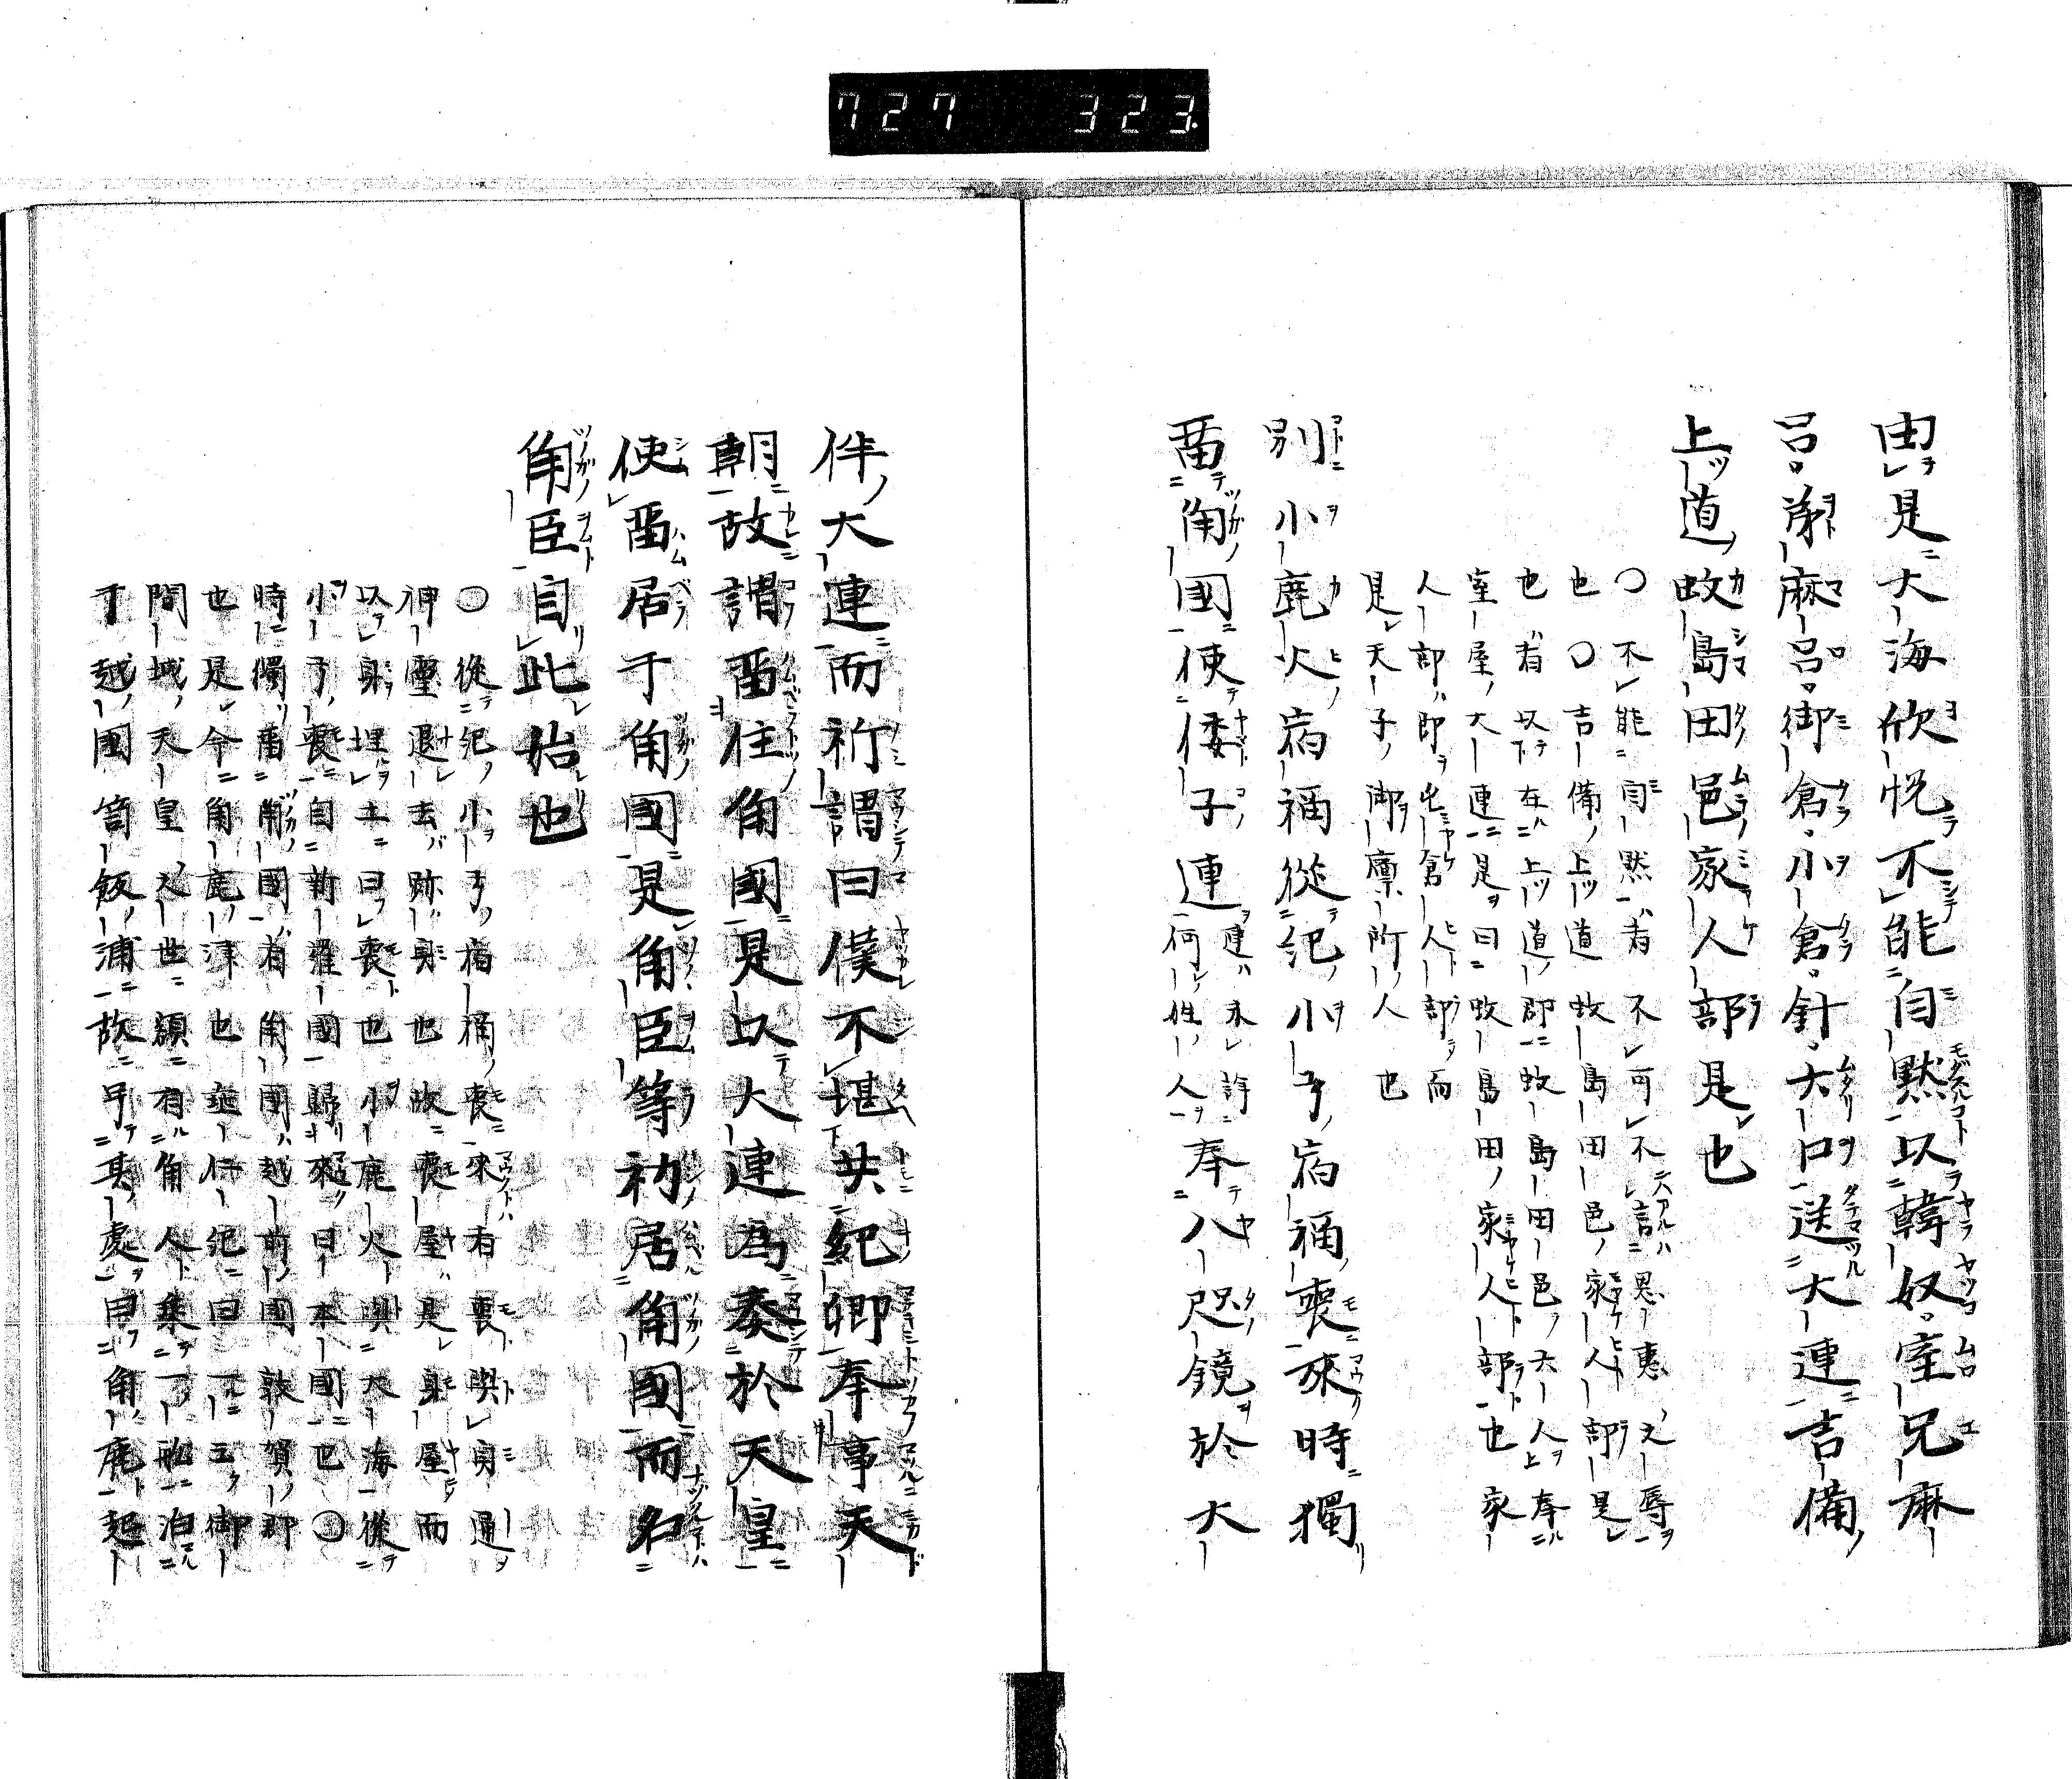 727 323.
由是大海欣悦不能自黙以韓奴室兄麻
呂弟麻呂御倉小倉針大口送大連吉備
上道蚊島田邑家人部是也
○不能自黙者不可不言恩惠之辱
也○吉備上道蚊島田邑家人部是
也者以在上道郡蚊島田邑大人奉
室屋大連是曰蚊島田家人部也家
人部即屯倉人部而
是天子御廩所人也
別小鹿火宿禰從紀小弓宿禰喪來時獨
畱角國使倭子連連未詳何姓人奉八咫鏡於大
伴大連而祈謂曰僕不堪共紀卿奉事天
朝故謂畱住角國是以大連爲奏於天皇
使畱居于角國是角臣等初居角國而名
角臣自此始也
○從紀小弓宿禰喪來者喪與身通
神靈退去跡身也故喪屋是身屋而
以身埋土曰喪也小鹿火與大海從
小弓喪自新羅國歸來曰本國也○
時獨畱角國者角國越前國敦賀郡
也是今角鹿津也垂仁紀曰一云御
間城天皇之世額有角人乘一船泊
于越國笥飯浦故号其處曰角鹿起